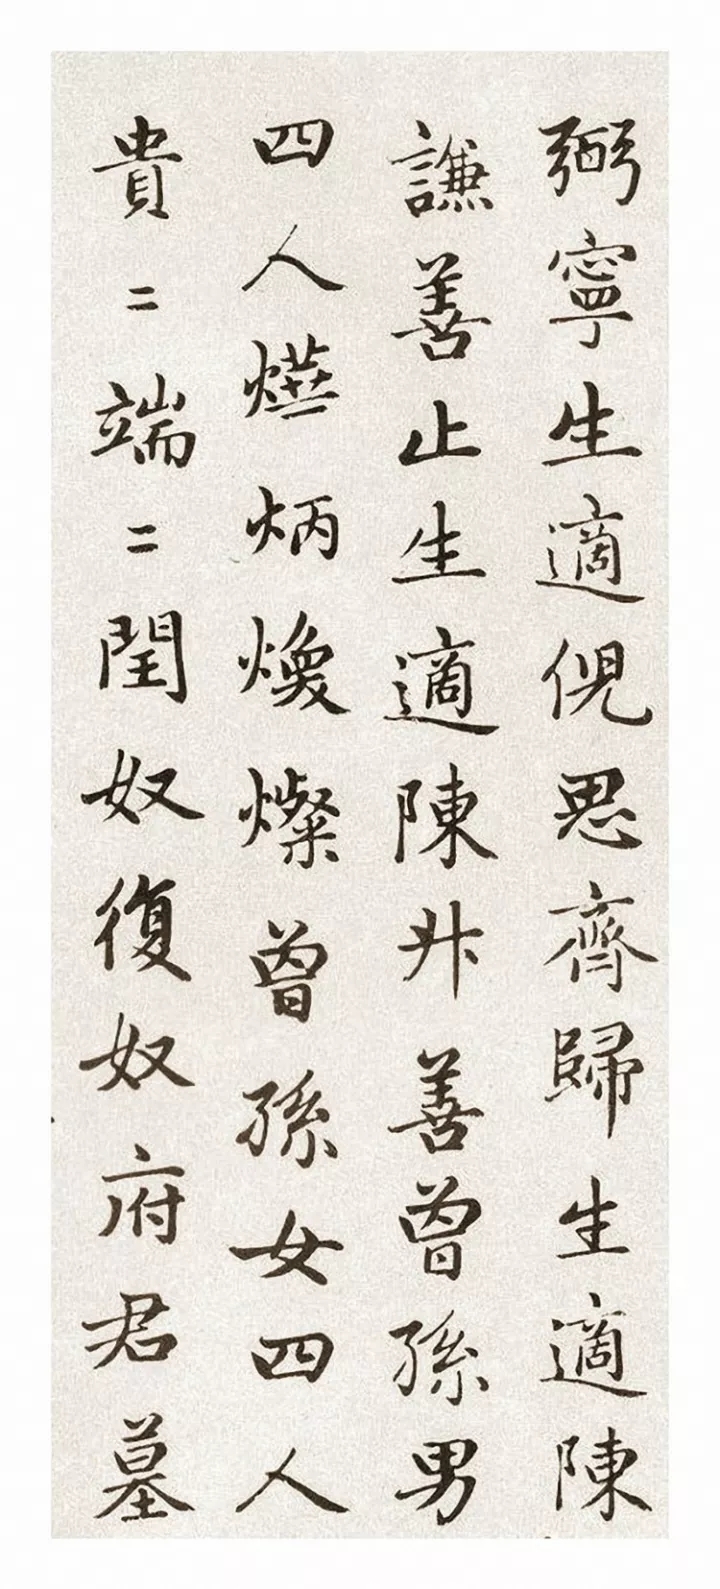 弼寧生適倪思齊歸生適陳
謙善止生適陳廾善曾孫男
四人燁炳煥燦曾孫女四人
貴二端二閏奴復奴府君墓